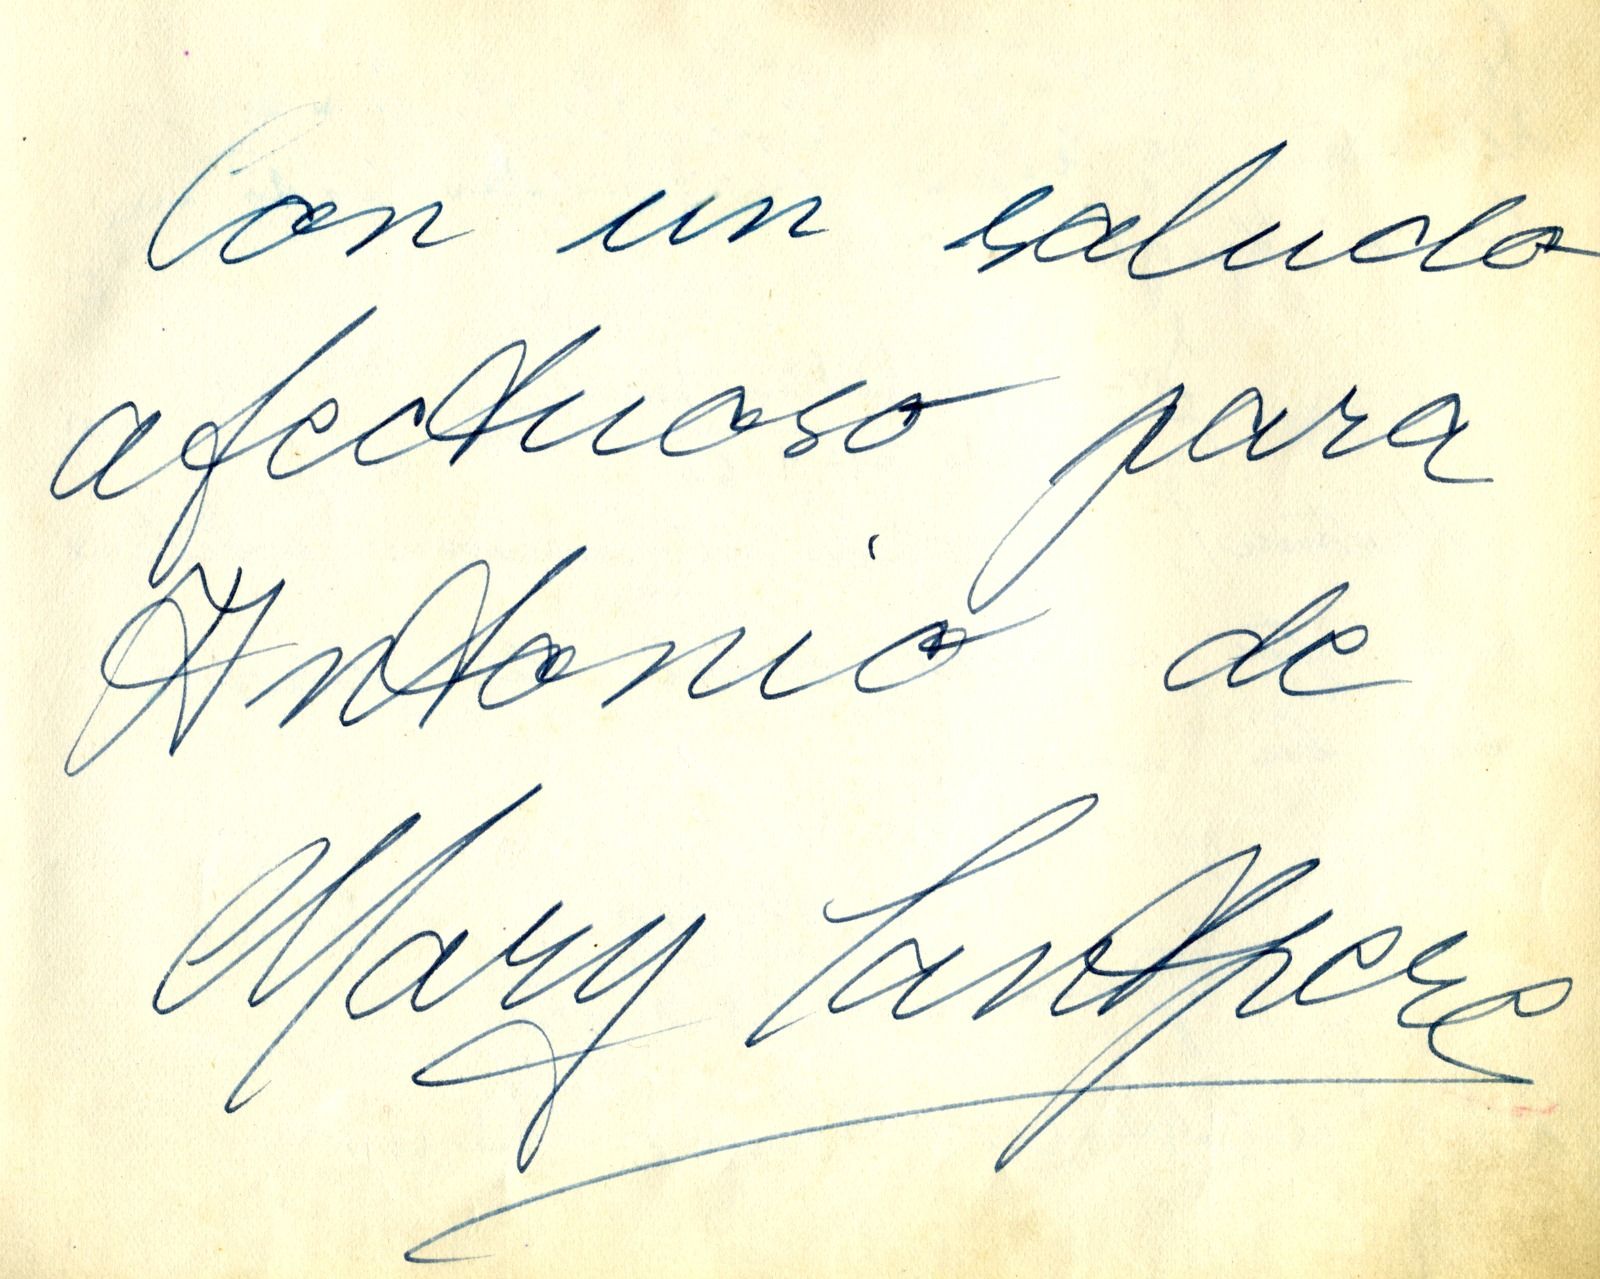 Con un saludo
afectuoso para
Antonio de
Mary Santpere